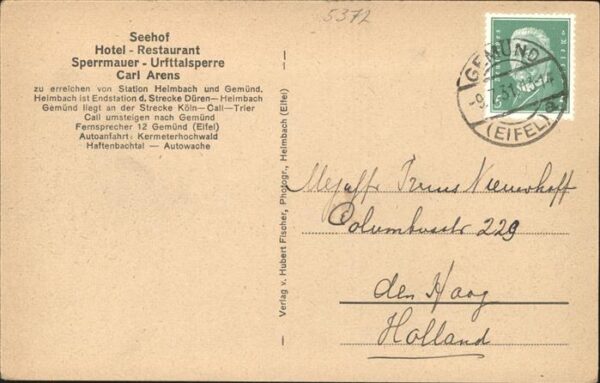 5372
Seehof
Hotel - Restaurant
Sperrmauer - Urfttalsperre
Carl Arens
zu erreichen von Station Heimbach und Gemünd.
Heimbach ist Endstation d. Strecke Düren—Heimbach
Gemünd liegt an der Strecke Köln—Call—Trier
Call umsteigen nach Gemünd
Fernsprecher 12 Gemünd (Eifel)
Autoanfahrt: Kermeterhochwald
Haftenbachtal — Autowache
Verlag v. Hubert Fischer, Photogr., Heimbach (Eifel)
GEMÜND
(EIFEL)
5
Truus Nieuwhoff
Columbusstr 229
den Haag
Holland